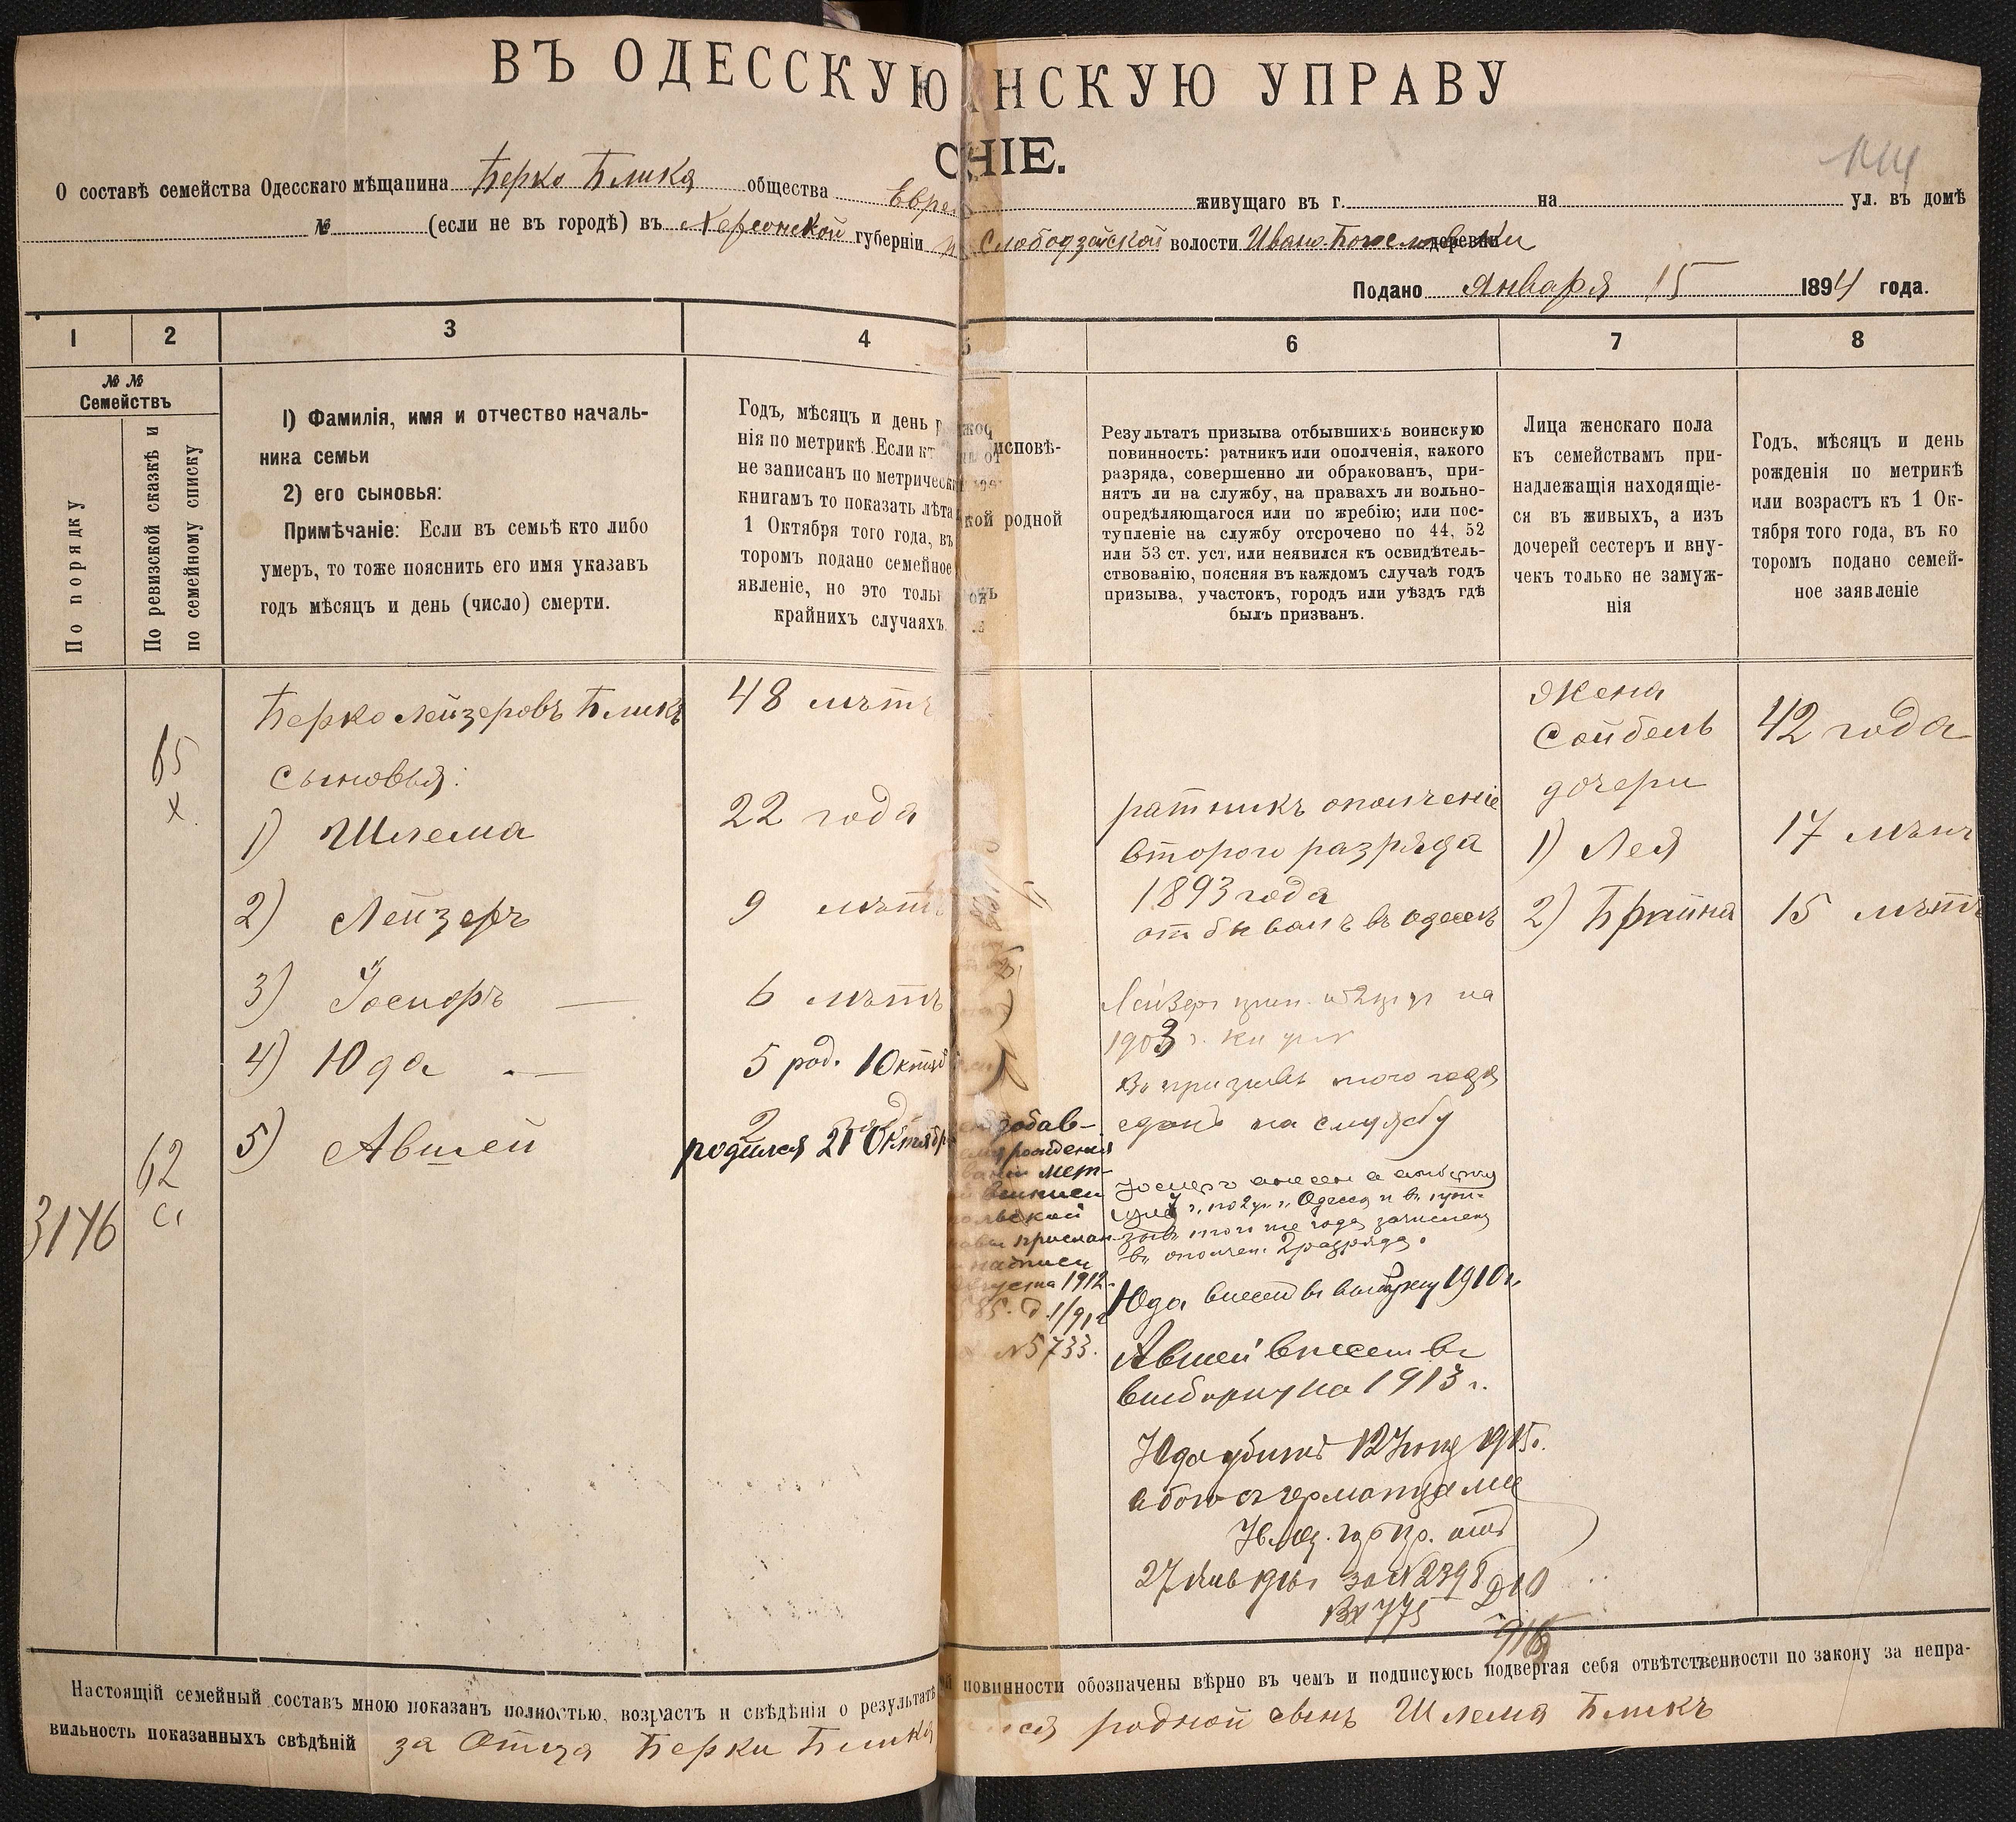 ВЪ ОДЕССКУЮ НСКУЮ УПРАВУ
НІЕ.
О составѣ семейства Одесскаго мѣщанина Берко Блика общества Евре живущаго въ г. на ул. въ домѣ
№ (если не въ городѣ) въ Херсонской губерніи Слободзейской волости Ивано-Богословки деревни
Подано Января 15 1894 года.
1 2 3 4 5 6 7 8
№ №
Семействъ
По порядку
По ревизской сказкѣ и
по семейному списку
1) Фамилія, имя и отчество началь-
ника семьи
2) его сыновья:
Примѣчаніе: Если въ семьѣ кто либо
умеръ, то тоже пояснить его имя указавъ
годъ мѣсяцъ и день (число) смерти.
Годъ, мѣсяцъ и день р
нія по метрикѣ Если кт
не записанъ по метрическ
книгамъ то показать лѣта
1 Октября того года, въ
торомъ подано семейное
явленіе, но это тольк
крайнихъ случаяхъ.
исповѣ-
кой родной
Результатъ призыва отбывшихъ воинскую
повинность: ратникъ или ополченія, какого
разряда, совершенно ли обракованъ, при-
нятъ ли на службу, на правахъ ли вольно-
опредѣляющагося или по жребію; или пос-
тупленіе на службу отсрочено по 44, 52
или 53 ст. уст. или неявился къ освидѣтель-
ствованію, поясняя въ каждомъ случаѣ годъ
призыва, участокъ, городъ или уѣздъ гдѣ
былъ призванъ.
Лица женскаго пола
къ семействамъ при-
надлежащія находящіе-
ся въ живыхъ, а изъ
дочерей сестеръ и вну-
чекъ только не замуж-
нія
Годъ, мѣсяцъ и день
рожденія по метрикѣ
или возрастъ къ 1 Ок-
тября того года, въ ко
торомъ подано семей-
ное заявленіе
65
х
62
3176
Берко Лейзеровъ Бликъ
сыновья:
1) Шлема
2) Лейзеръ
3) Іосифъ —
4) Юда —
5) Авшей
48 лѣтъ
22 года
9 лѣтъ
6 лѣтъ
5 род. 1 Октяб
2 года
родился 21 Октябр
добав-
рожденія
мет-
прислан
надписи
Августа 1912
1/912
№5733.
ратникъ ополченіе
второго разряда
1893 года
отбывалъ въ Одессѣ
Лейзеръ на
1903 г.
въ призывъ того года
сданъ на службу
Одесса и въ
того же года зачисленъ
въ ополчен. 2 разряда.
Юда внесенъ въ выборку 1910 г.
Авшей внесенъ въ
выборку на 1913 г.
Юда убитъ 12 Іюня 1915г.
в бою съ германцами
отъ
27 Янв 1916г за №2398
Вх 775
Д10
916
Жена
Сойбель
дочери
1) Лея
2) Брайна
42 года
17 лѣтъ
15 лѣтъ
Настоящій семейный составъ мною показанъ полностью, возрастъ и свѣдѣнія о результатѣ повинности обозначены вѣрно въ чемъ и подписуюсь подвергая себя отвѣтственности по закону за непра-
вильность показанныхъ свѣдѣній за Отца Берки Блика родной сынъ Шлема Бликъ